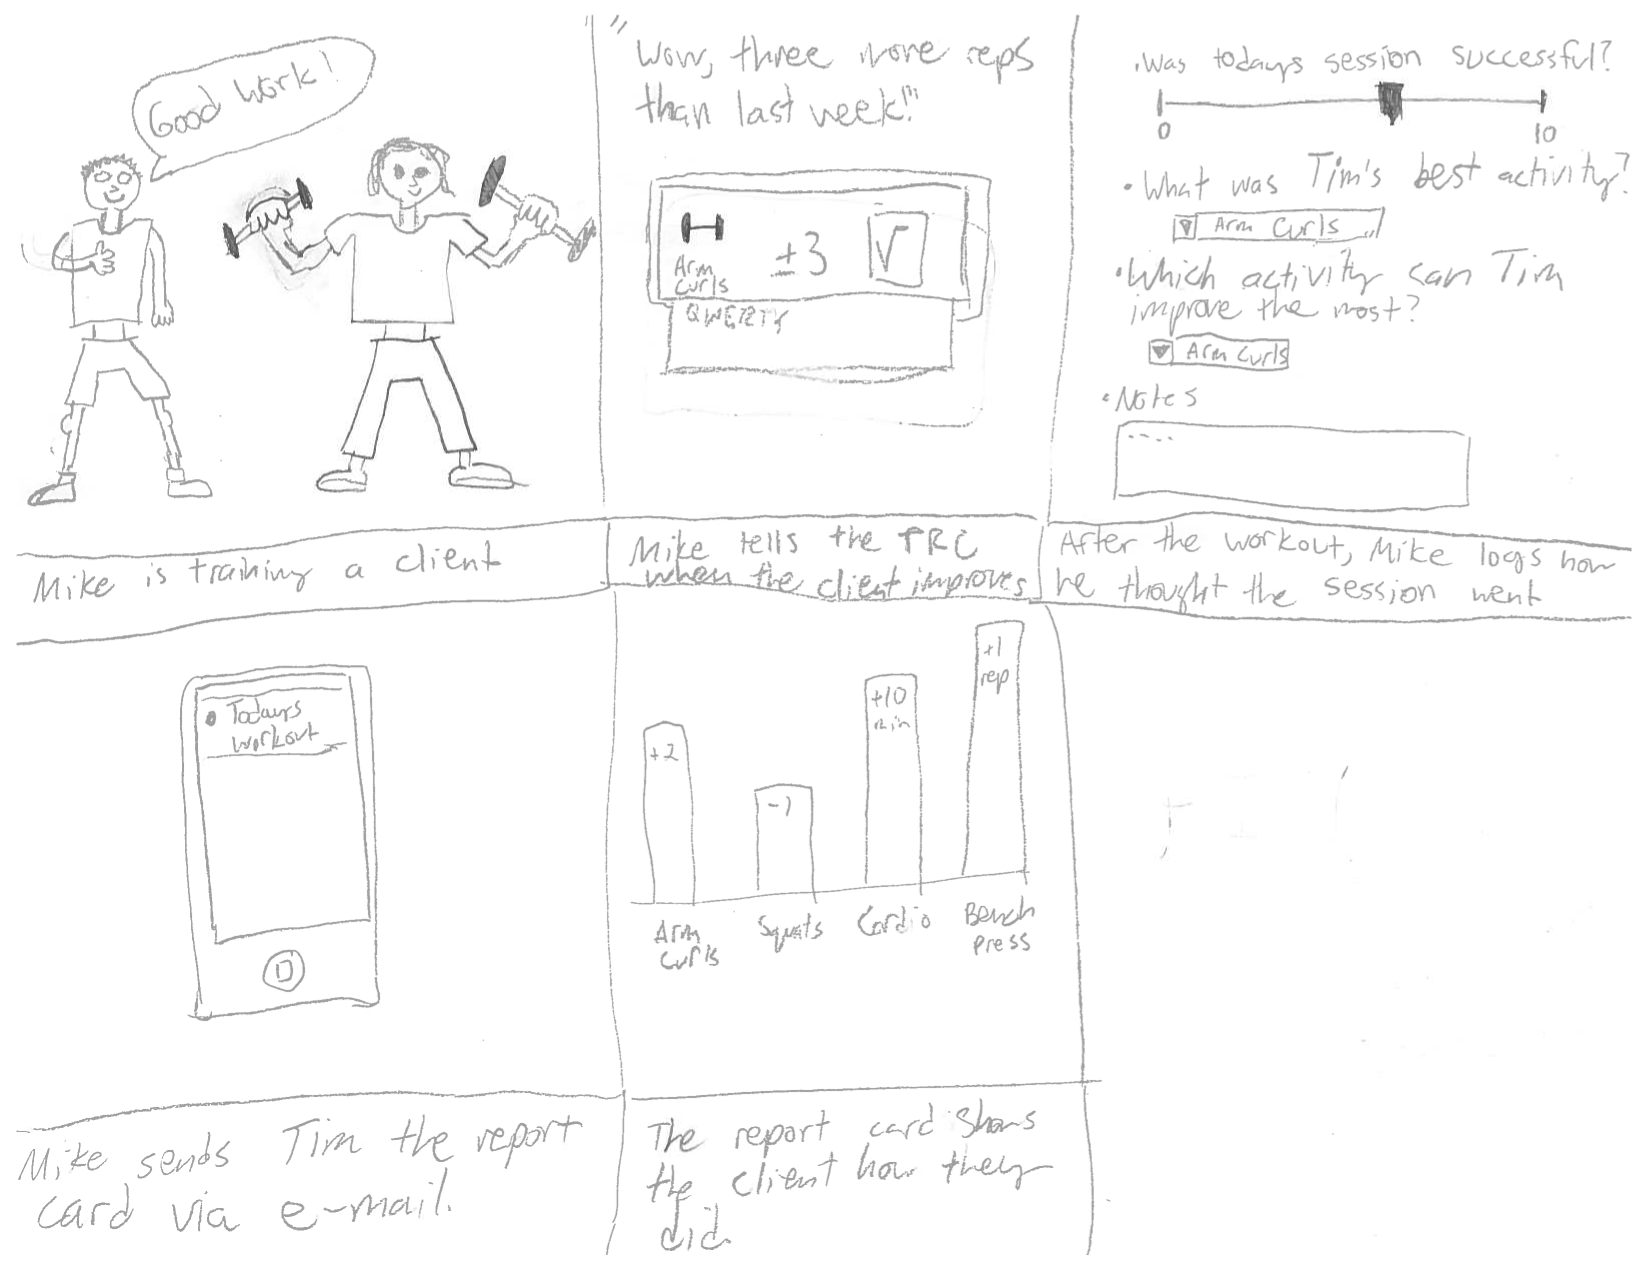 Good Work!
Mike is training a client
"Wow, three more reps
than last week!"
Arm
Curls
±3
QWERTY
Mike tells the TRC
when the client improves
• Was todays session successful?
0
10
• What was Tim's best activity?
Arm Curls
• Which activity can Tim
improve the most?
Arm Curls
• Notes
After the workout, Mike logs how
he thought the session went
Todays
workout
Mike sends Tim the report
card via e-mail.
+2
-1
+10
min
+1
rep
Arm
Curls
Squats
Cardio
Bench
Press
The report card shows
the client how they
did